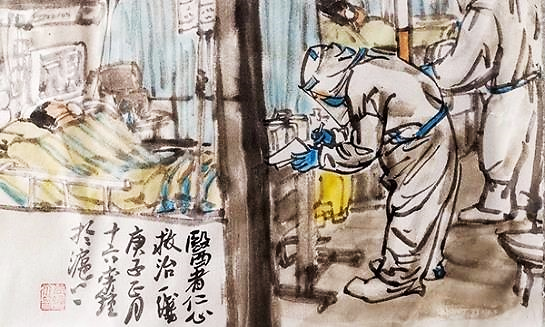 醫者仁心
救治一線
庚子正月
十六
於滬上